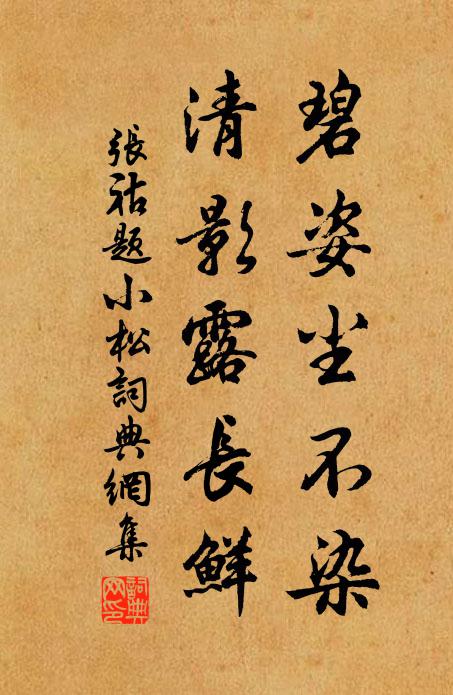 碧姿尘不染
清影露長鮮
張祜題小松詞典網集
詞典网印